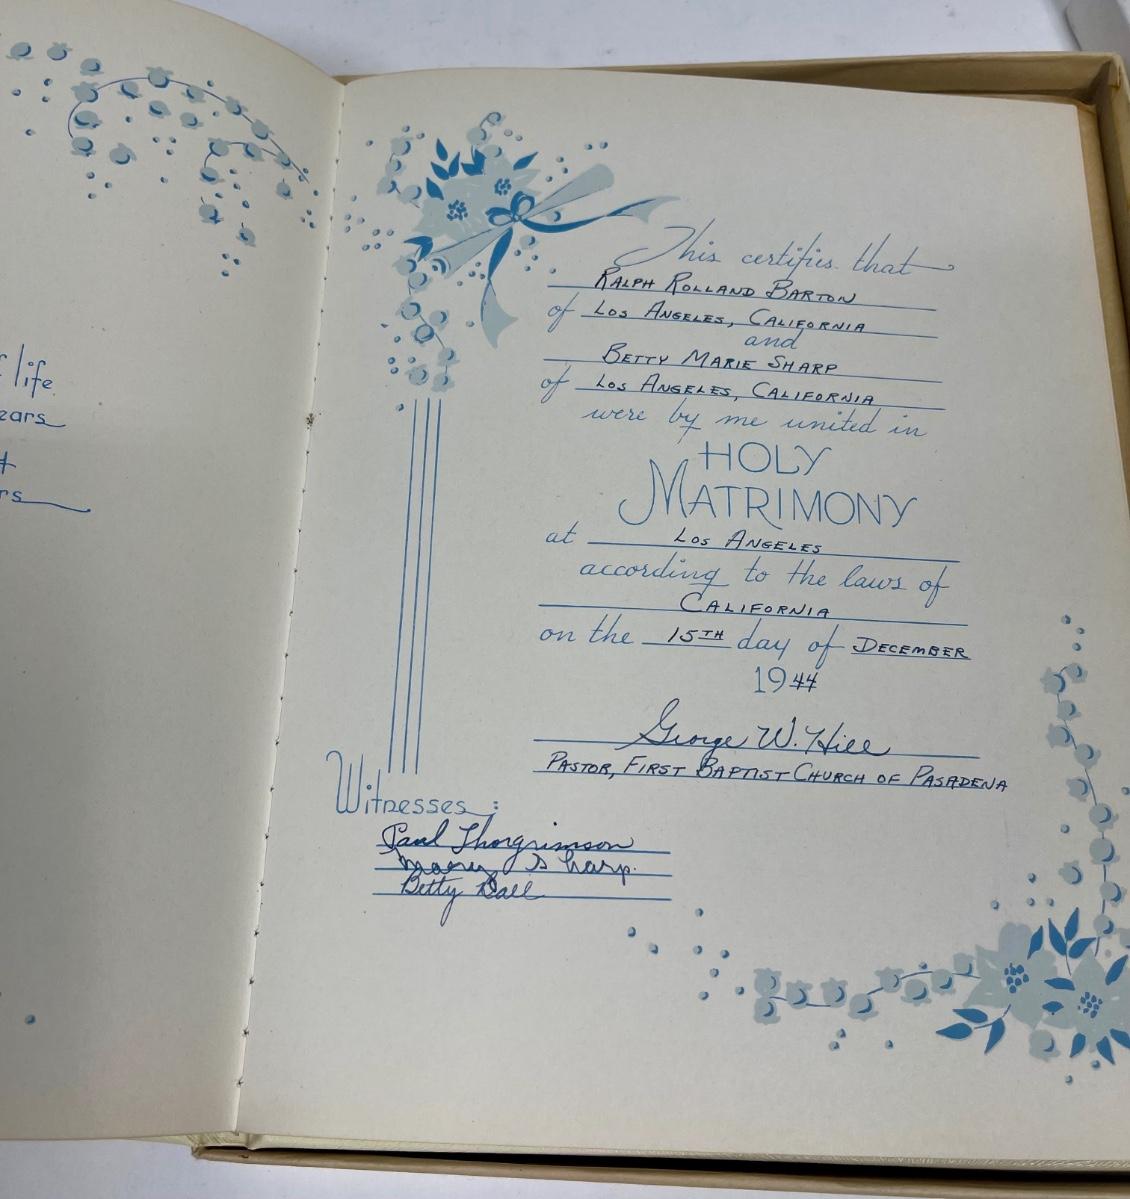 life
This certifies that
RALPH ROLLAND BARTON
of LOS ANGELES, CALIFORNIA
and
BETTY MARIE SHARP
of LOS ANGELES, CALIFORNIA
were by me united in
HOLY
MATRIMONY
at LOS ANGELES
according to the laws of
CALIFORNIA
on the 15TH day of DECEMBER
1944
George W. Hill
PASTOR, FIRST BAPTIST CHURCH OF PASADENA
Witnesses:
Paul Thorgrimson
Mary Sharp.
Betty